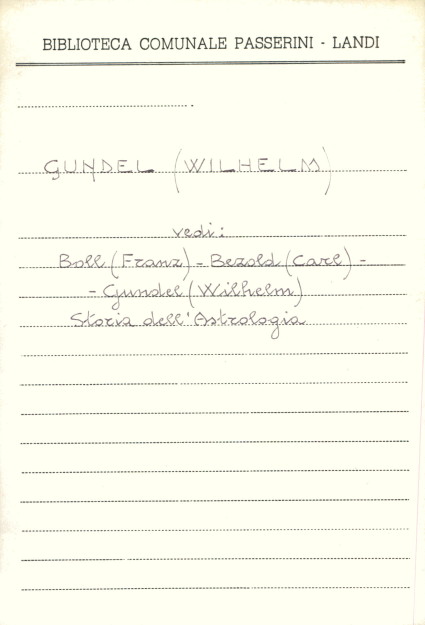 BIBLIOTECA COMUNALE PASSERINI - LANDI
GUNDEL (WILHELM)
vedi:
Boll (Franz) - Bezold (Carl) -
- Gundel (Wilhelm)
Storia dell'Astrologia